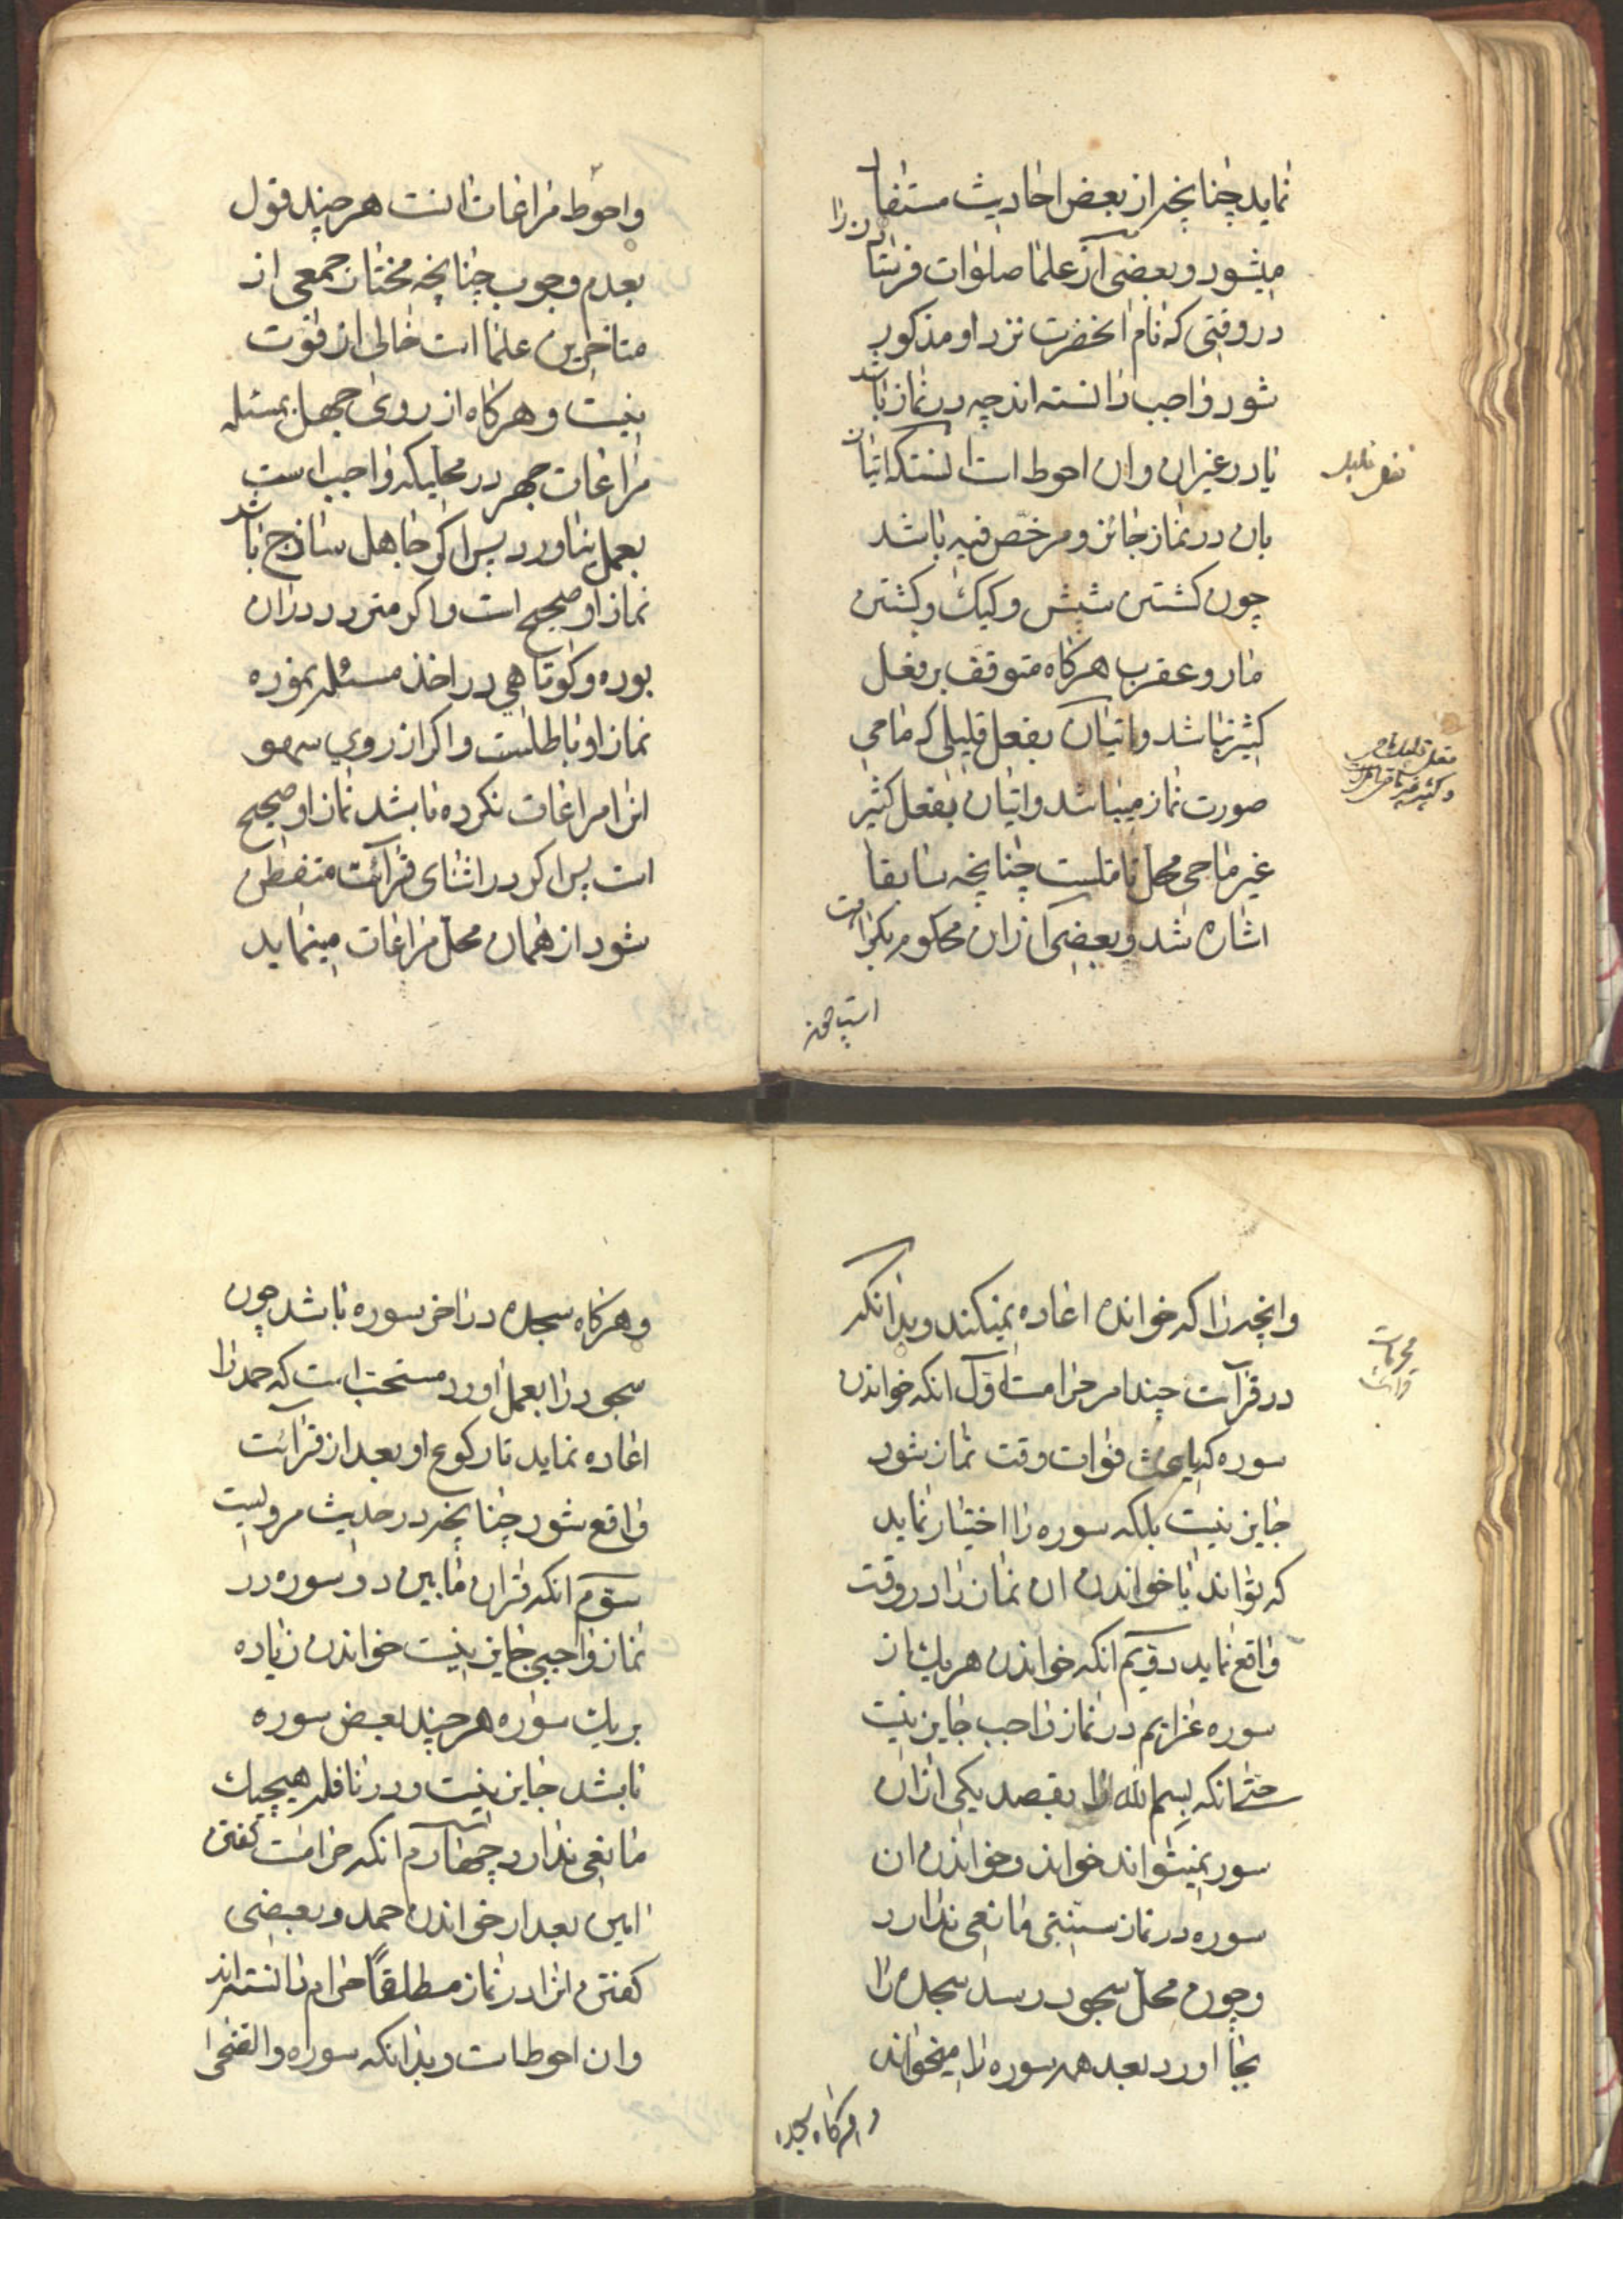 نماید چنانچه از بعض احادیث مستفاد
میشود و بعضی از علما صلوات فرستادن را
در وقتی که نام انحضرت نزد او مذکور
شود واجب دانسته اند چه در نماز باشد
یا در غیر ان و ان احوط است انستکه اتیان
بان در نماز جائز و مرخص فیه باشد
فعل قلیل
چون کشتن شپش و کیک و کشتن
مار و عقرب هرکاه متوقف بر فعل
کثیر نباشد و اتیان بفعل قلیلی که ماحی
صورت نماز میباشد و اتیان بفعل کثیر
غیر ماحی محل تاملست چنانچه سابقا
اشاره شد و بعضی از ان محکوم بکراهت
فعل قلیل ماحی
و کثیر غیر ماحی
است
واحوط مراعات انست هر چند قول
بعدم وجوب چنانچه مختار جمعی از
متاخرین علما است خالی از قوت
نیست و هرکاه از روی جهل بمسئله
مراعات جهر در محلیکه واجب است
بعمل نیاورد پس اکر جاهل ساذج باشد
نماز او صحیح است و اکر متردد دران
بوده و کوتاهی در اخذ مسئله نموده
نماز او باطلست و اکر از روی سهو
انرا مراعات نکرده باشد نماز او صحیح
است پس اکر در اثنای قرائت متفطن
شود از همان محل مراعات مینماید
وانچه را که خوانده اعاده نمیکند و بدانکه
در قرآت چند امر حرامست اول انکه خواندن
سوره که باعث فوات وقت نماز شود
جایز نیست بلکه سوره را اختیار نماید
که تواند با خواندن ان نماز را در وقت
واقع نماید دویم انکه خواندن هر یک از
سوره عزایم در نماز واجب جایز نیست
حتی انکه بسم الله را بقصد یکی از ان
سور نمیتواند خواند و خواندن ان
سوره در نماز سنتی مانعی ندارد
و چون محل سجود رسد سجده را
بجا اورد بعد همه سوره را میخواند
محرمات
قرائت
و هرکاه سجده
و هرکاه سجده در اخر سوره باشد چون
سجود را بعمل اورد مستحب است که حمد را
اعاده نماید تا رکوع او بعد از قرائت
واقع شود چنانچه در حدیث مرویست
سوم انکه قران مابین دو سوره در
نماز واجبی جایز نیست خواندن زیاده
بر یک سوره هر چند بعض سوره
باشد جایز نیست و در نافله هیچیک
مانعی ندارد چهارم انکه حرامست گفتن
امین بعد از خواندن حمد و بعضی
کفتن انرا در نماز مطلقاً حرام دانسته اند
وان احوط است و بدانکه سوره والضحی